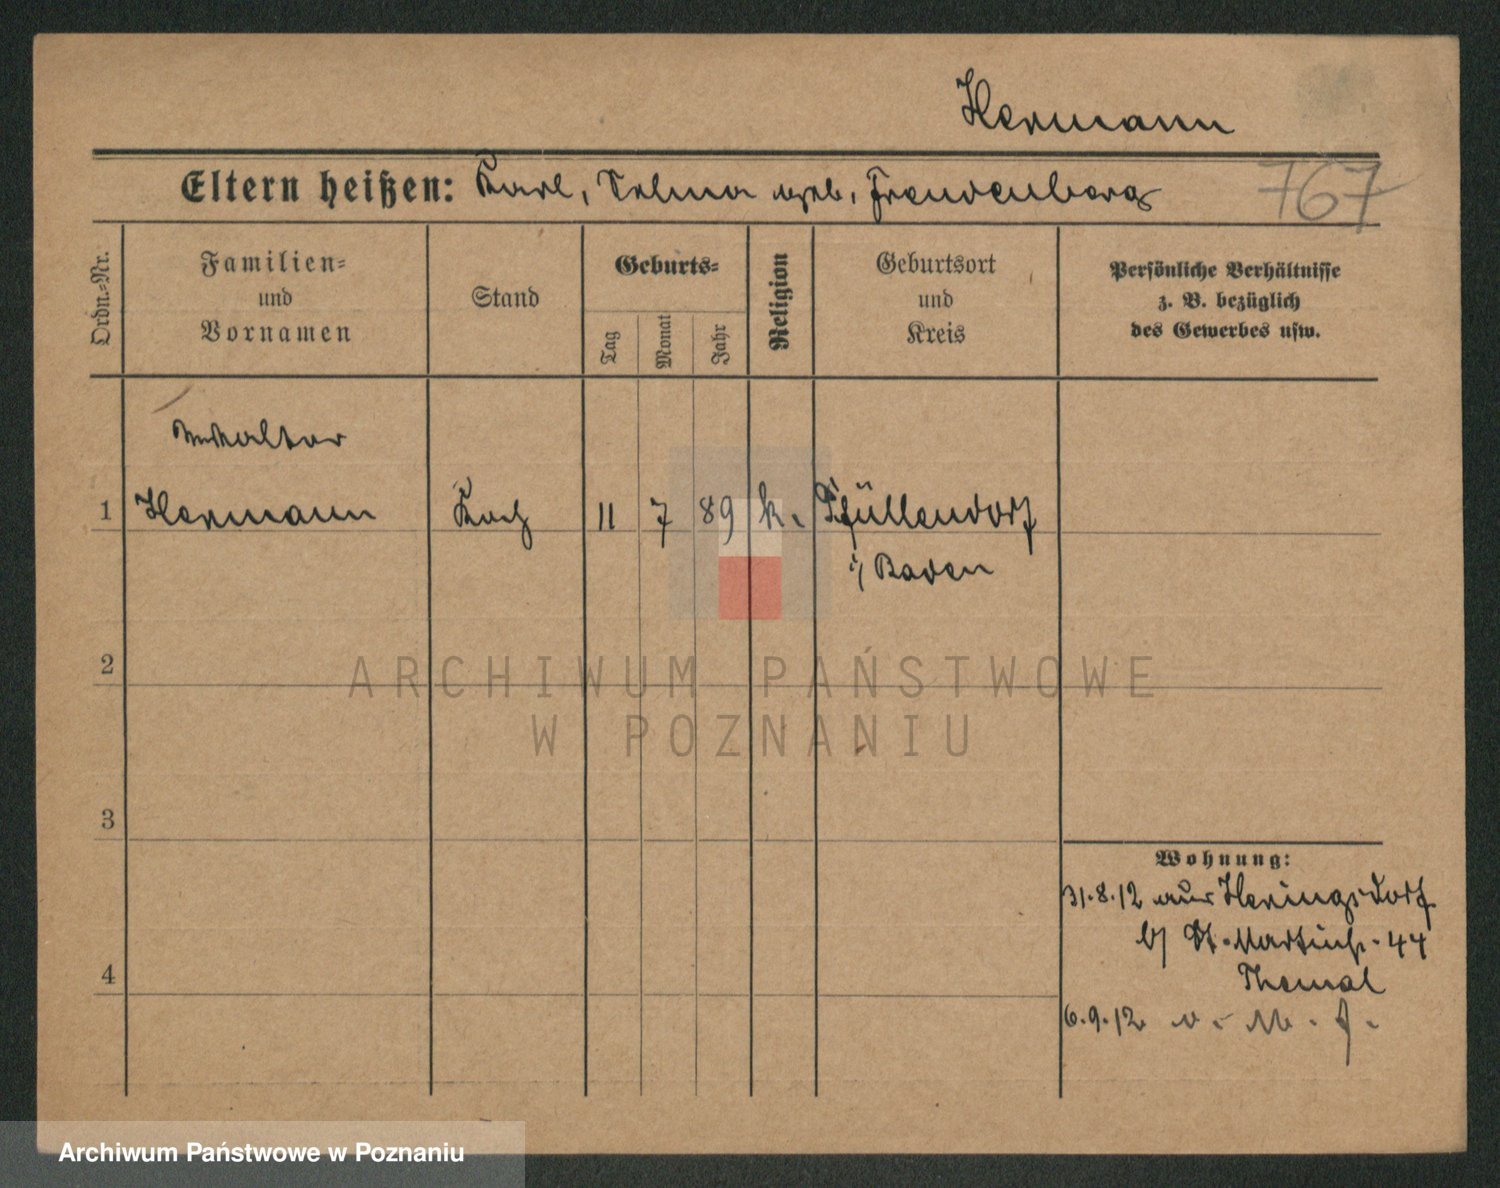 Hermann
Eltern heißen: Karl, Selma geb. Freudenberg
767
Ordn.-Nr.
Familien-
und
Vornamen
Stand
Geburts-
Tag
Monat
Jahr
Religion
Geburtsort
und
Kreis
Persönliche Verhältnisse
z. B. bezüglich
des Gewerbes usw.
Walter
1 Hermann Koch 11 7 89 k. Pfüllendorf
i/ Baden
2
3
4
Wohnung:
31.8.12 aus Heringsdorf
b/ St. Martinstr. 44
6.9.12 v.
ARCHIWUM PAŃSTWOWE
W POZNANIU
Archiwum Państwowe w Poznaniu